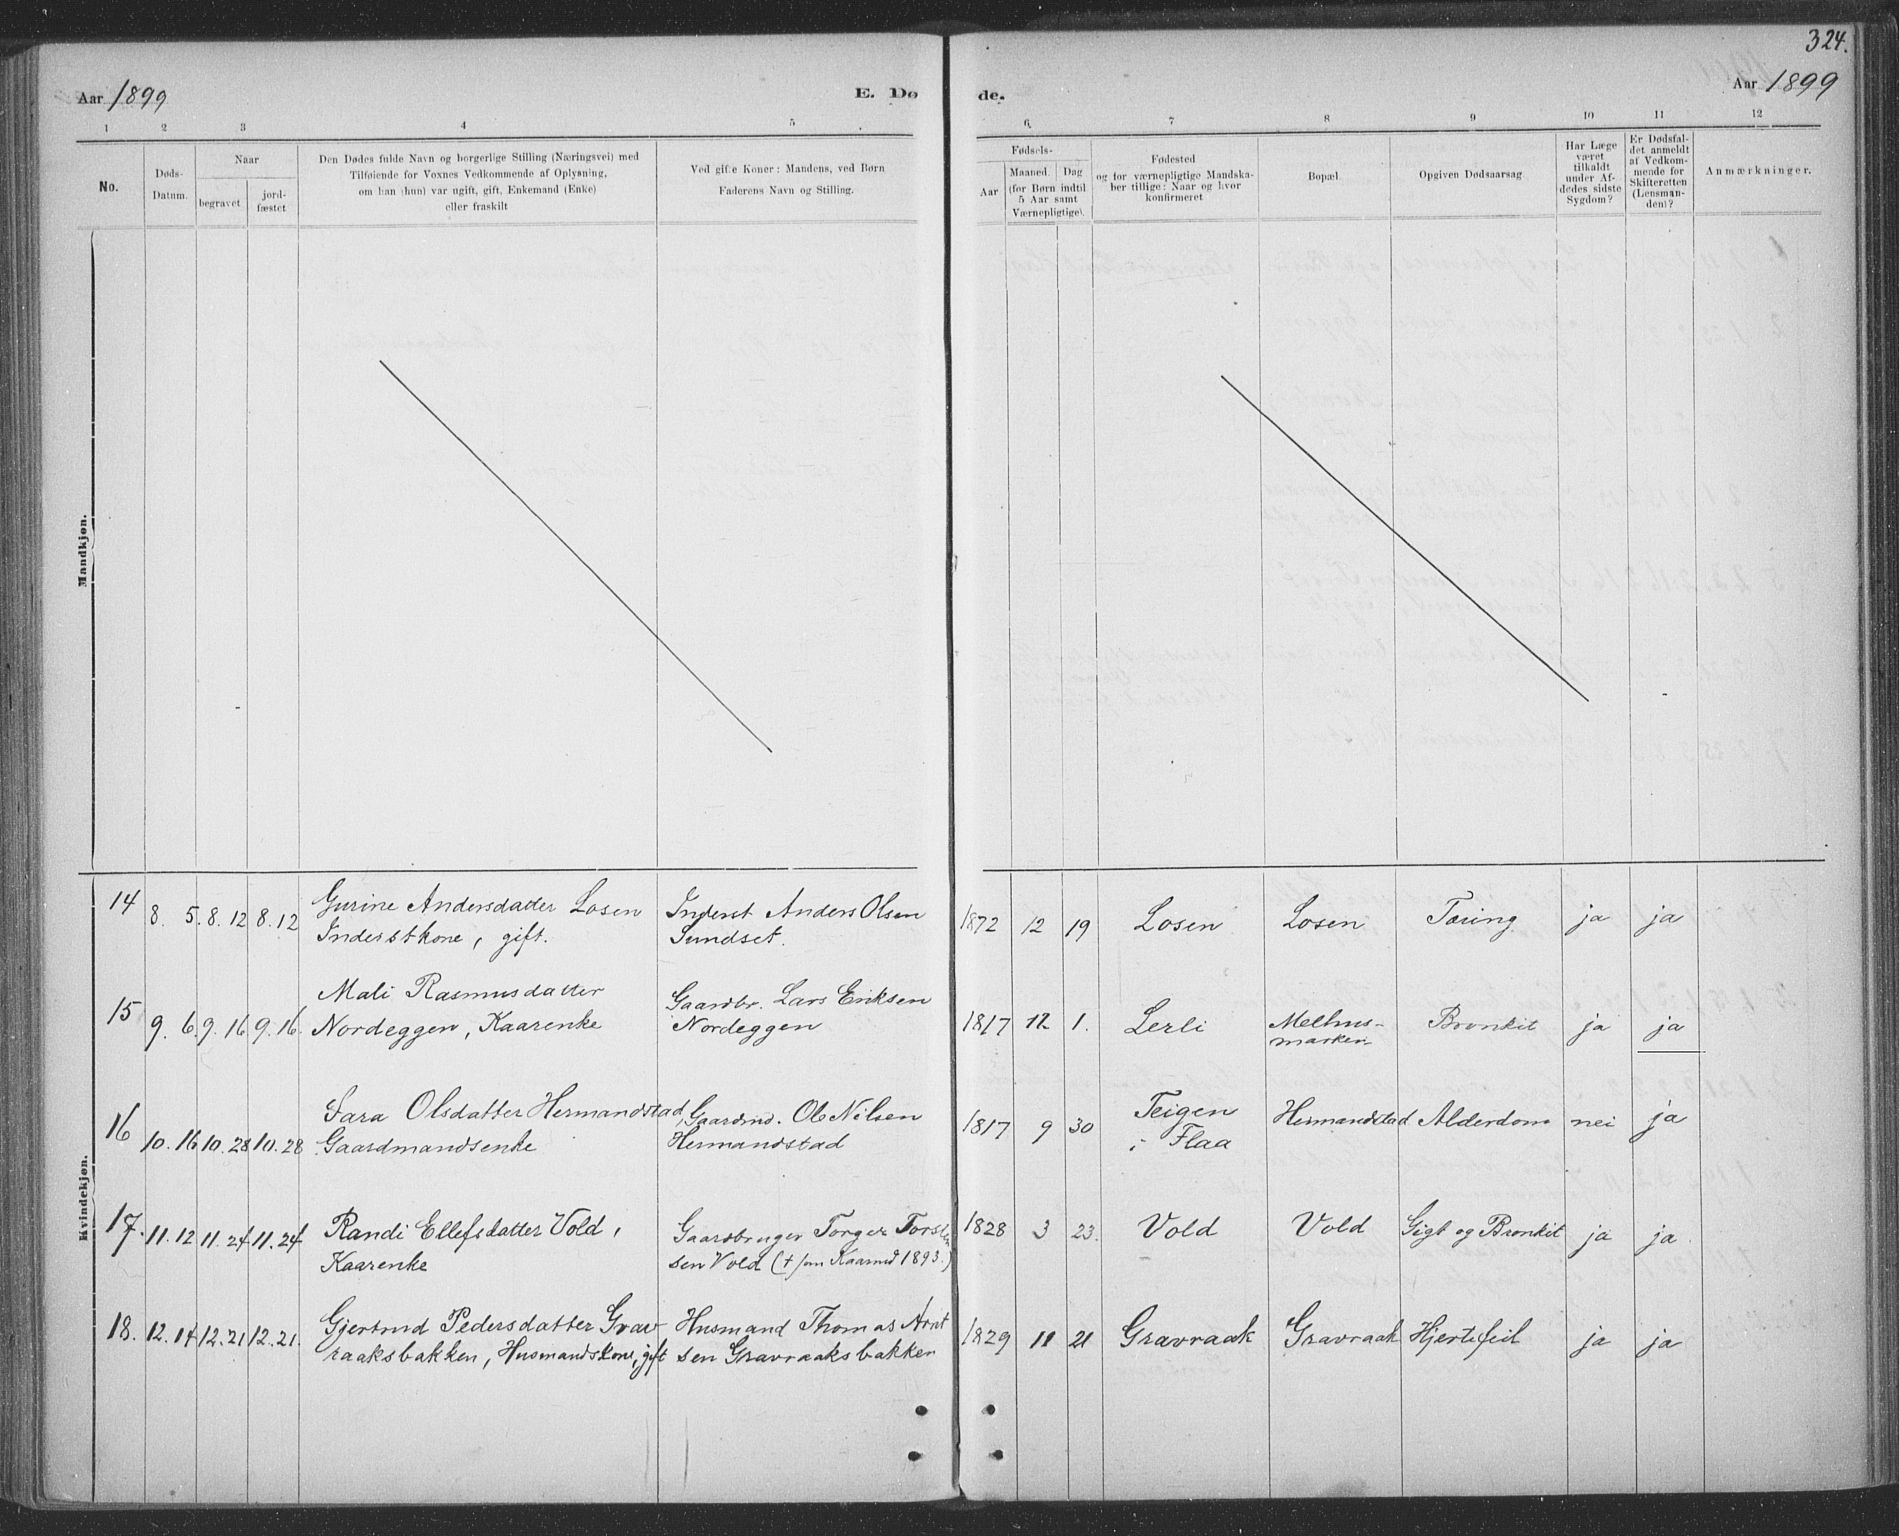 324.
Aar 1899 E. Døde. Aar 1899
1 2 3 4 5 6 7 8 9 10 11 12
No.
Døds-
Datum.
Naar
begravet
jord-
fæstet
Den Dødes fulde Navn og borgerlige Stilling (Næringsvei) med
Tilføiende for Voxnes Vedkommende af Oplysning,
om han (hun) var ugift, gift, Enkemand (Enke)
eller fraskilt
Ved gifte Koner: Mandens, ved Børn
Faderens Navn og Stilling.
Fødsels-
Aar
Maaned. Dag
(for Børn indtil
5 Aar samt
Værnepligtige).
Fødested
og for værnepligtige Mandska-
ber tillige: Naar og hvor
konfirmeret
Bopæl.
Opgiven Dødsaarsag.
Har Læge
været
tilkaldt
under Af-
dødes sidste
Sygdom?
Er Dødsfal-
det anmeldt
af Vedkom-
mende for
Skifteretten
(Lensman-
den)?
Anmærkninger.
Mandkjøn.
Kvindekjøn.
14 8. 5. 8. 12 8. 12 Gurine Andersdatter Losen Inderst Anders Olsen 1872 12 19 Losen Losen Tæring ja ja
Inderstkone, gift. Sundset.
15 9. 6. 9. 16 9. 16. Mali Rasmusdatter Gaardbr. Lars Eriksen 1817 12. 1. Lerli Melhus- Bronkit ja ja
Nordeggen, Kaarenke Nordeggen marken
16 10. 16 10. 28 10. 28 Sara Olsdatter Hermandstad, Gaardmd. Ole Nilsen 1817 9 30 Teigen Hermandstad Alderdom nei ja
Gaardmandsenke Hermandstad i Flaa
17. 11. 12 11. 24 11. 24 Randi Ellefsdatter Vold, Gaardbruger Torger Torstein 1828 3 23. Vold Vold Gigt og Bronkit ja ja
Kaarenke sen Vold († som Kaarmd 1893.)
18. 12. 14 12. 21 12. 21. Gjertrud Pedersdatter Grav- Husmand Thomas Arnt 1829 11 21 Gravraak Gravraak Hjertefeil ja ja
raaksbakken, Husmandskone, gift sen Gravraaksbakken